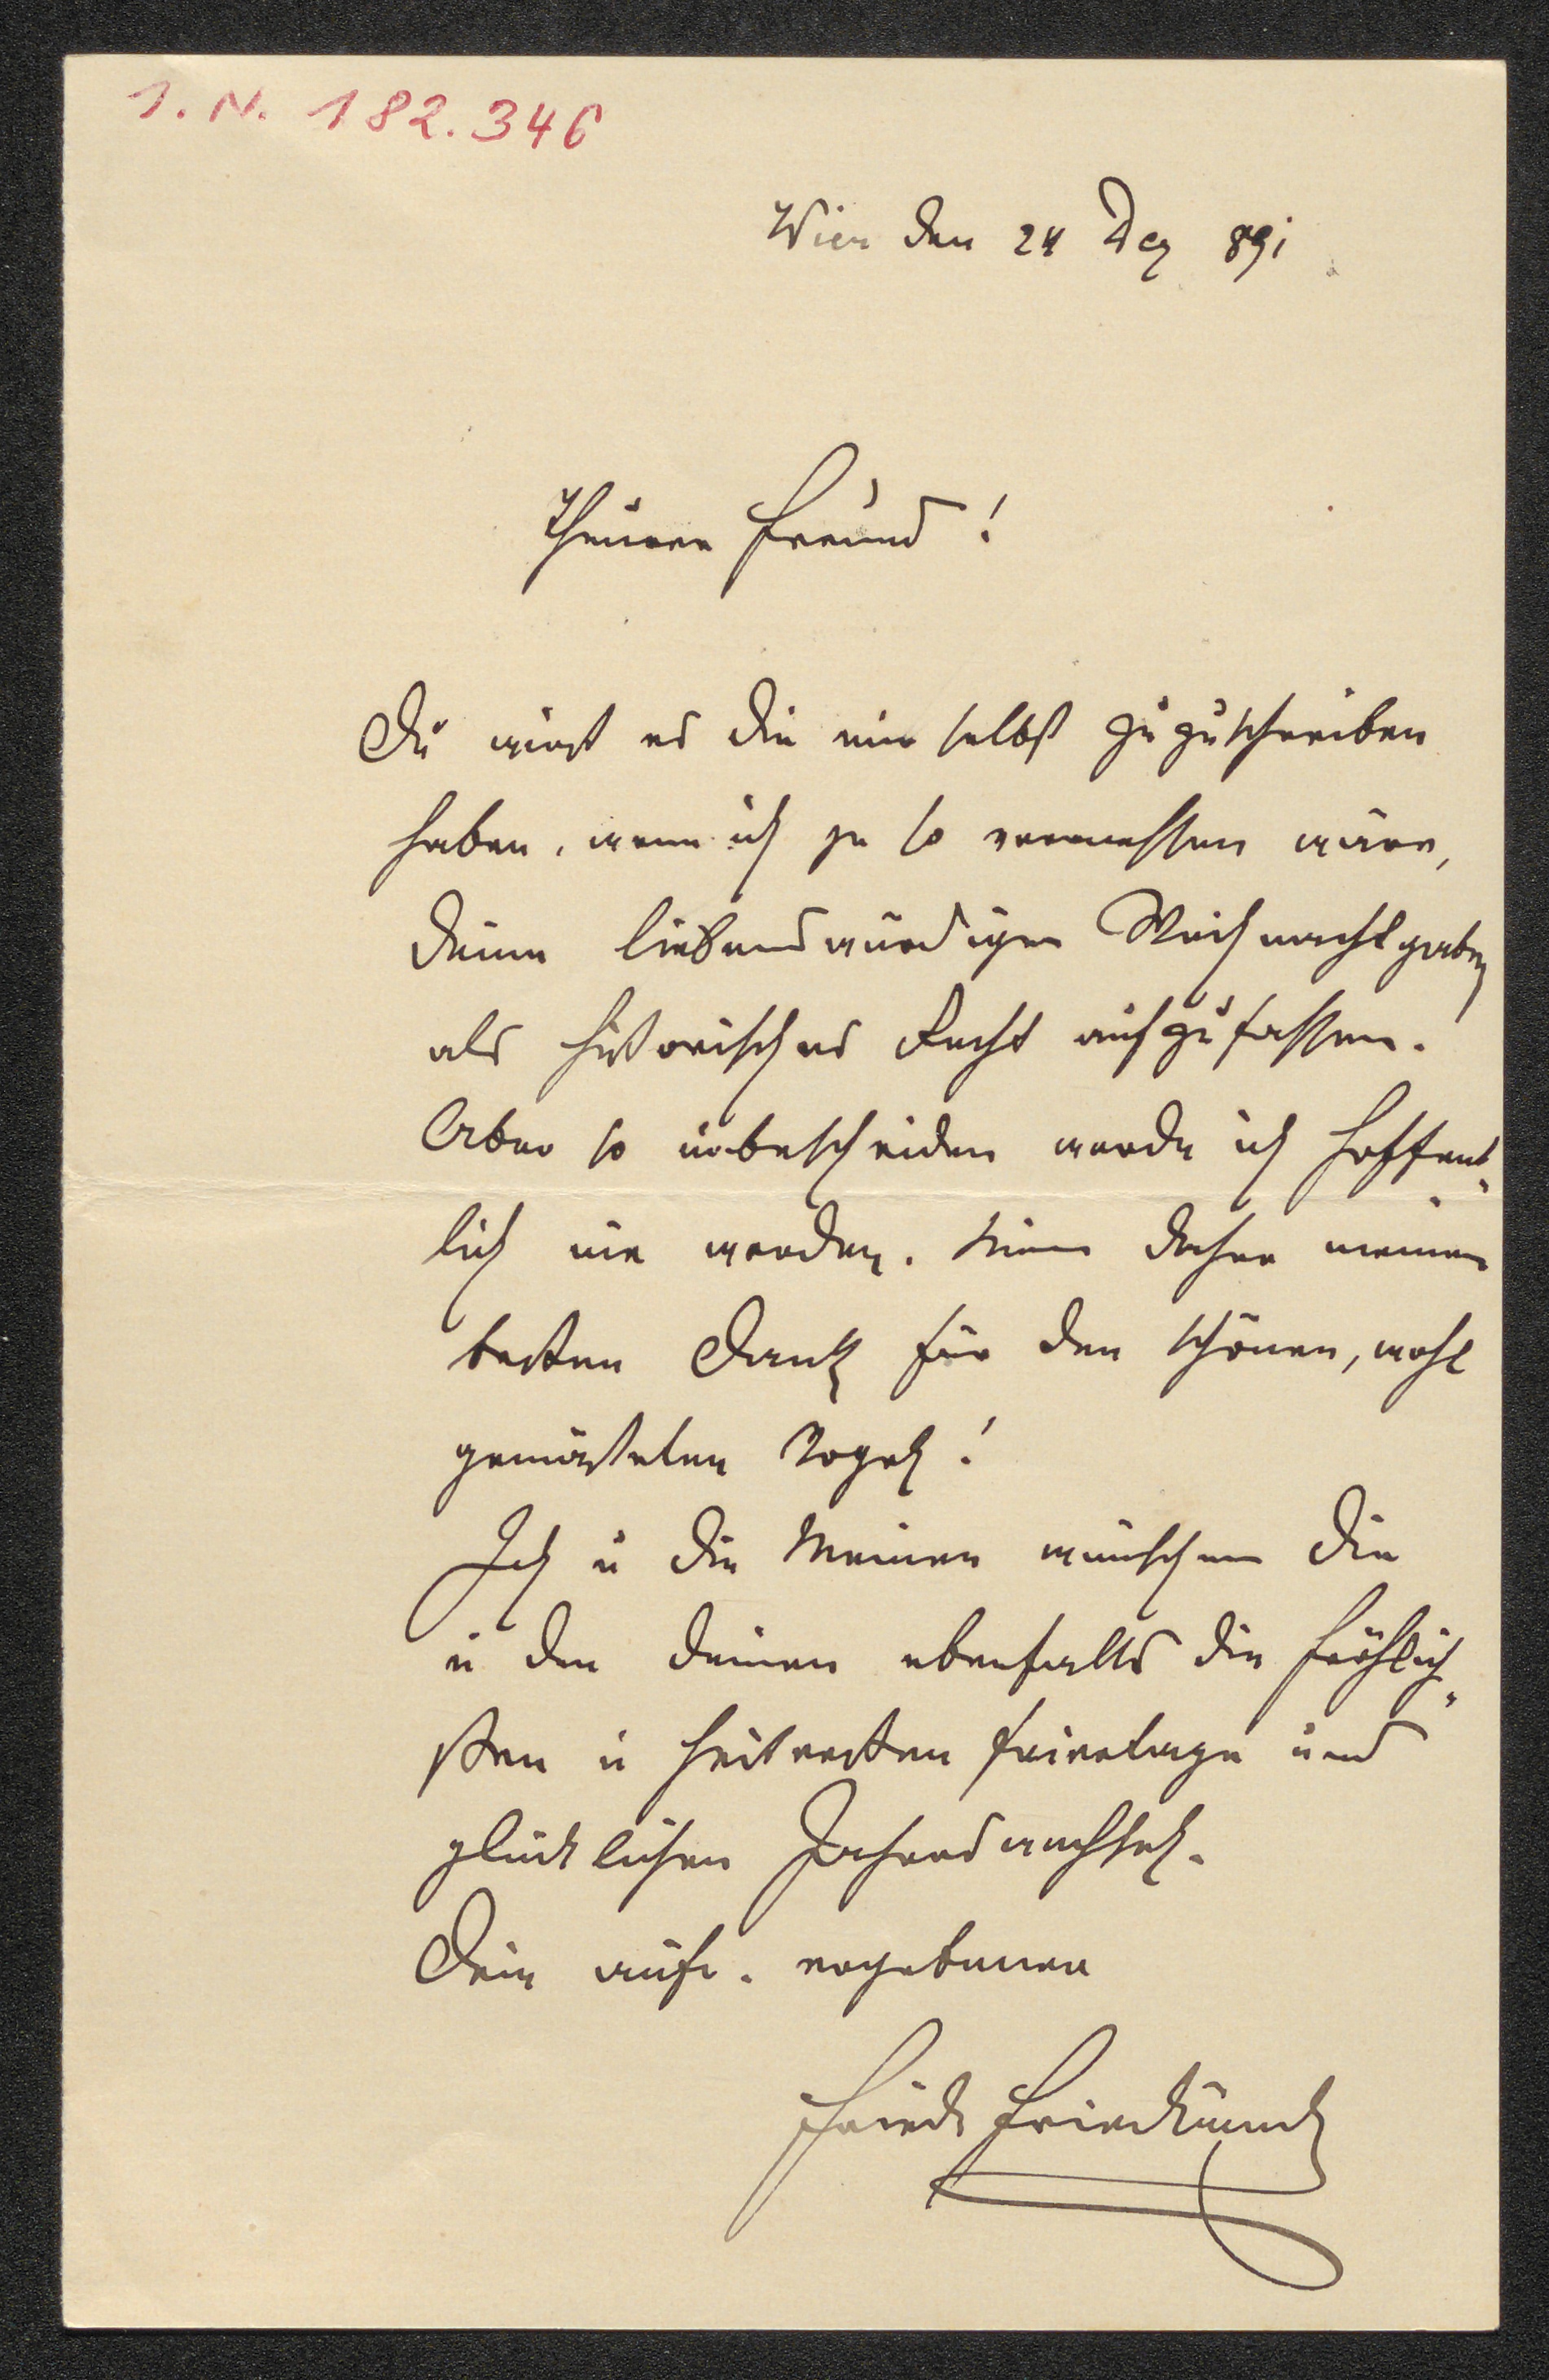 I. N. 182.346
Wien den 24 Dez 891
Theurer Freund!
Du wirst es Dir nur selbst zuzuschreiben
haben, wenn ich je so vermessen wäre,
Deine liebenswürdigen Weihnachtgaben
als historisches Recht aufzufassen.
Aber so unbescheiden werde ich hoffent-
lich nie werden. Nimm daher meinen
besten Dank für den schönen, wohl
gemästeten Vogel!
Ich u die Meinen wünschen Dir
u den Deinen ebenfalls die fröhlich-
sten u heitersten Feiertage und
glücklichen Jahreswechsel.
Dein aufr. ergebener
Friedr